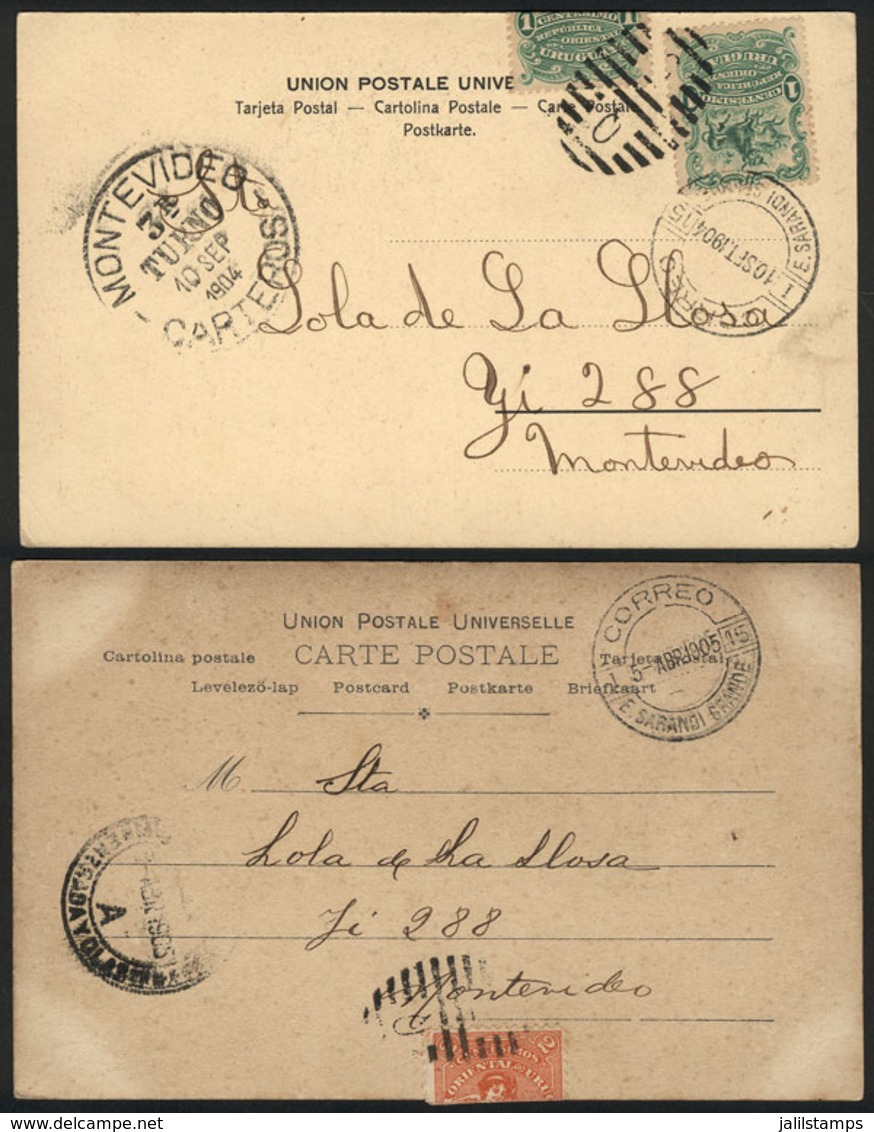 1 CENTESIMO 1
REPÚBLICA
ORIENTAL
URUGUAY
1 CENTESIMO
REPÚBLICA
ORIENTAL
URUGUAY
UNION POSTALE UNIVE
Tarjeta Postal — Cartolina Postale — Carte Postale
Postkarte.
MONTEVIDEO
3er
TURNO
10 SEP
1904
CARTEROS
10.SET.1904
15
E. SARANDI
Lola de La Llosa
Yi 288
Montevideo
UNION POSTALE UNIVERSELLE
Cartolina postale CARTE POSTALE Tarjeta postal
Levelező-lap Postcard Postkarte Briefkaart
CORREO
5-ABR.1905
15
E. SARANDI GRANDE
M Sta
Lola de La Llosa
Yi 288
Montevideo
A
ABR 1905
2
ORIENTAL DEL URUG
jalilstamps